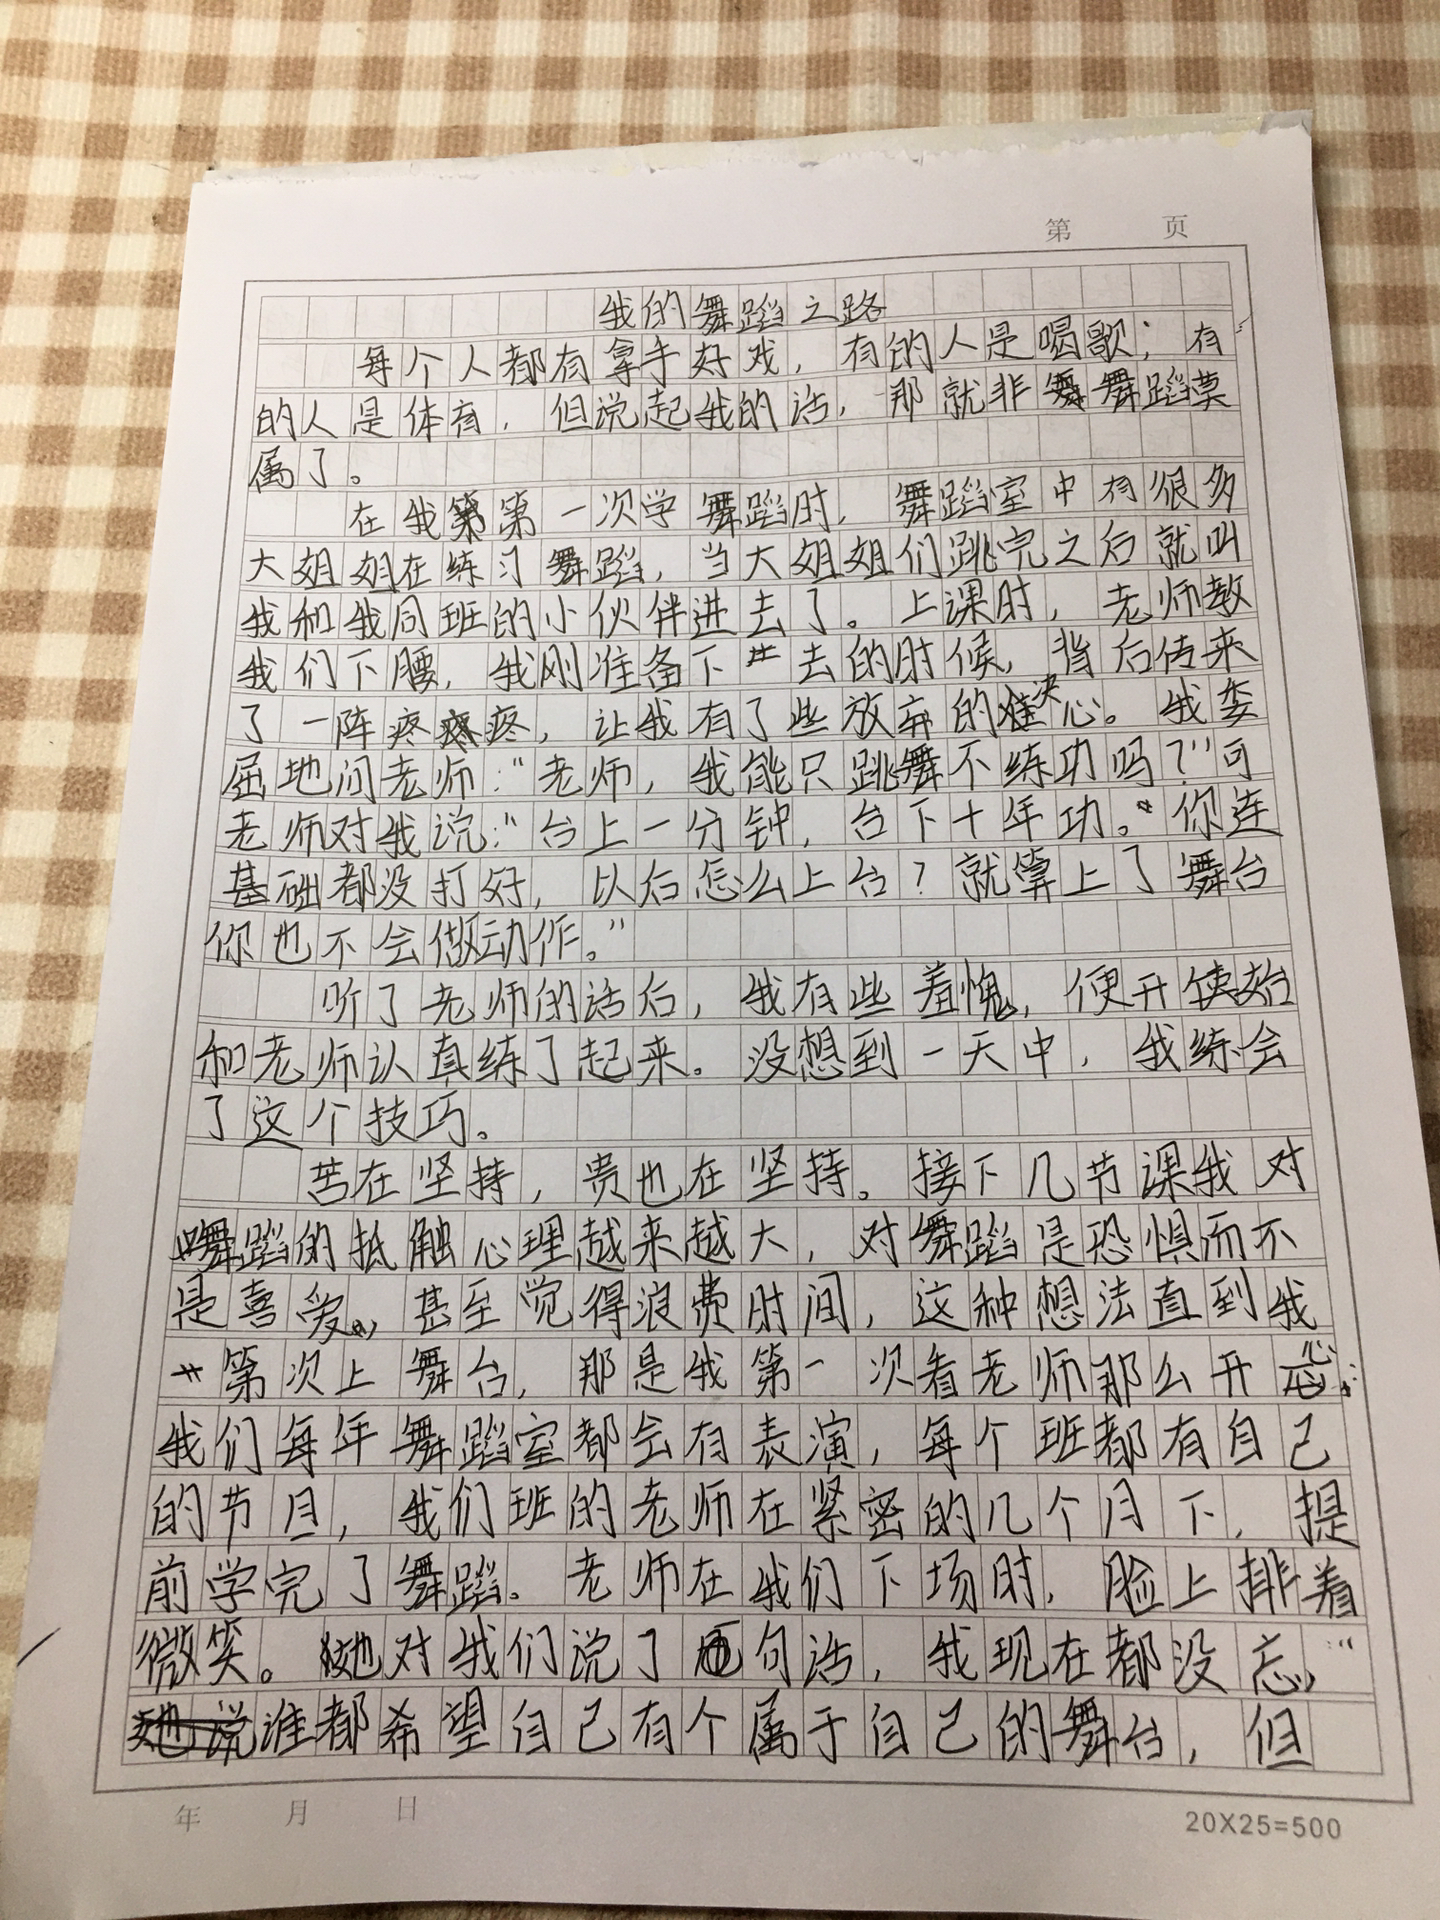 第 页
我的舞蹈之路
每个人都有拿手好戏，有的人是喝歌；有
的人是体育，但说起我的话，那就非舞蹈莫
属了。
在我第一次学舞蹈时，舞蹈室中有很多
大姐姐在练习舞蹈，当大姐姐们跳完之后就叫
我和我同班的小伙伴进去了。上课时，老师教
我们下腰，我刚准备下去的时候，背后传来
了一阵疼疼，让我有了些放弃的决心。我委
屈地问老师：“老师，我能只跳舞不练功吗？”可
老师对我说：“台上一分钟，台下十年功。你连
基础都没打好，以后怎么上台？就算上了舞台
你也不会做动作。”
听了老师的话后，我有些羞愧，便开始
和老师认真练了起来。没想到一天中，我练会
了这个技巧。
苦在坚持，贵也在坚持。接下几节课我对
舞蹈的抵触心理越来越大，对舞蹈是恐惧而不
是喜爱，甚至觉得浪费时间，这种想法直到我
第次上舞台，那是我第一次看老师那么开心：
我们每年舞蹈室都会有表演，每个班都有自己
的节目，我们班的老师在紧密的几个月下，提
前学完了舞蹈。老师在我们下场时，脸上排着
微笑。她对我们说了句话，我现在都没忘：“
谁都希望自己有个属于自己的舞台，但
年 月 日
20X25=500